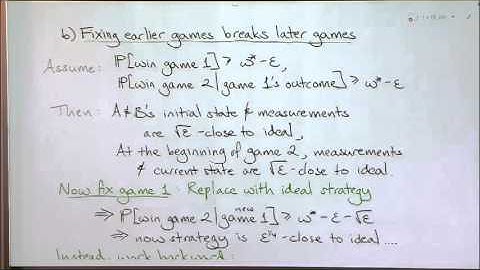 b) Fixing earlier games breaks later games
Assume: P[win game 1] ≥ ω* - ε,
P[win game 2 | game 1's outcome] ≥ ω* - ε
Then: A & B's initial state & measurements
are √ε -close to ideal,
At the beginning of game 2, measurements
& current state are √ε -close to ideal.
Now fix game 1: Replace with ideal strategy
new
⇒ P[win game 2 | game 1] ≥ ω* - ε - √ε
⇒ now strategy is ε^1/4 -close to ideal ....
Instead, work backward: